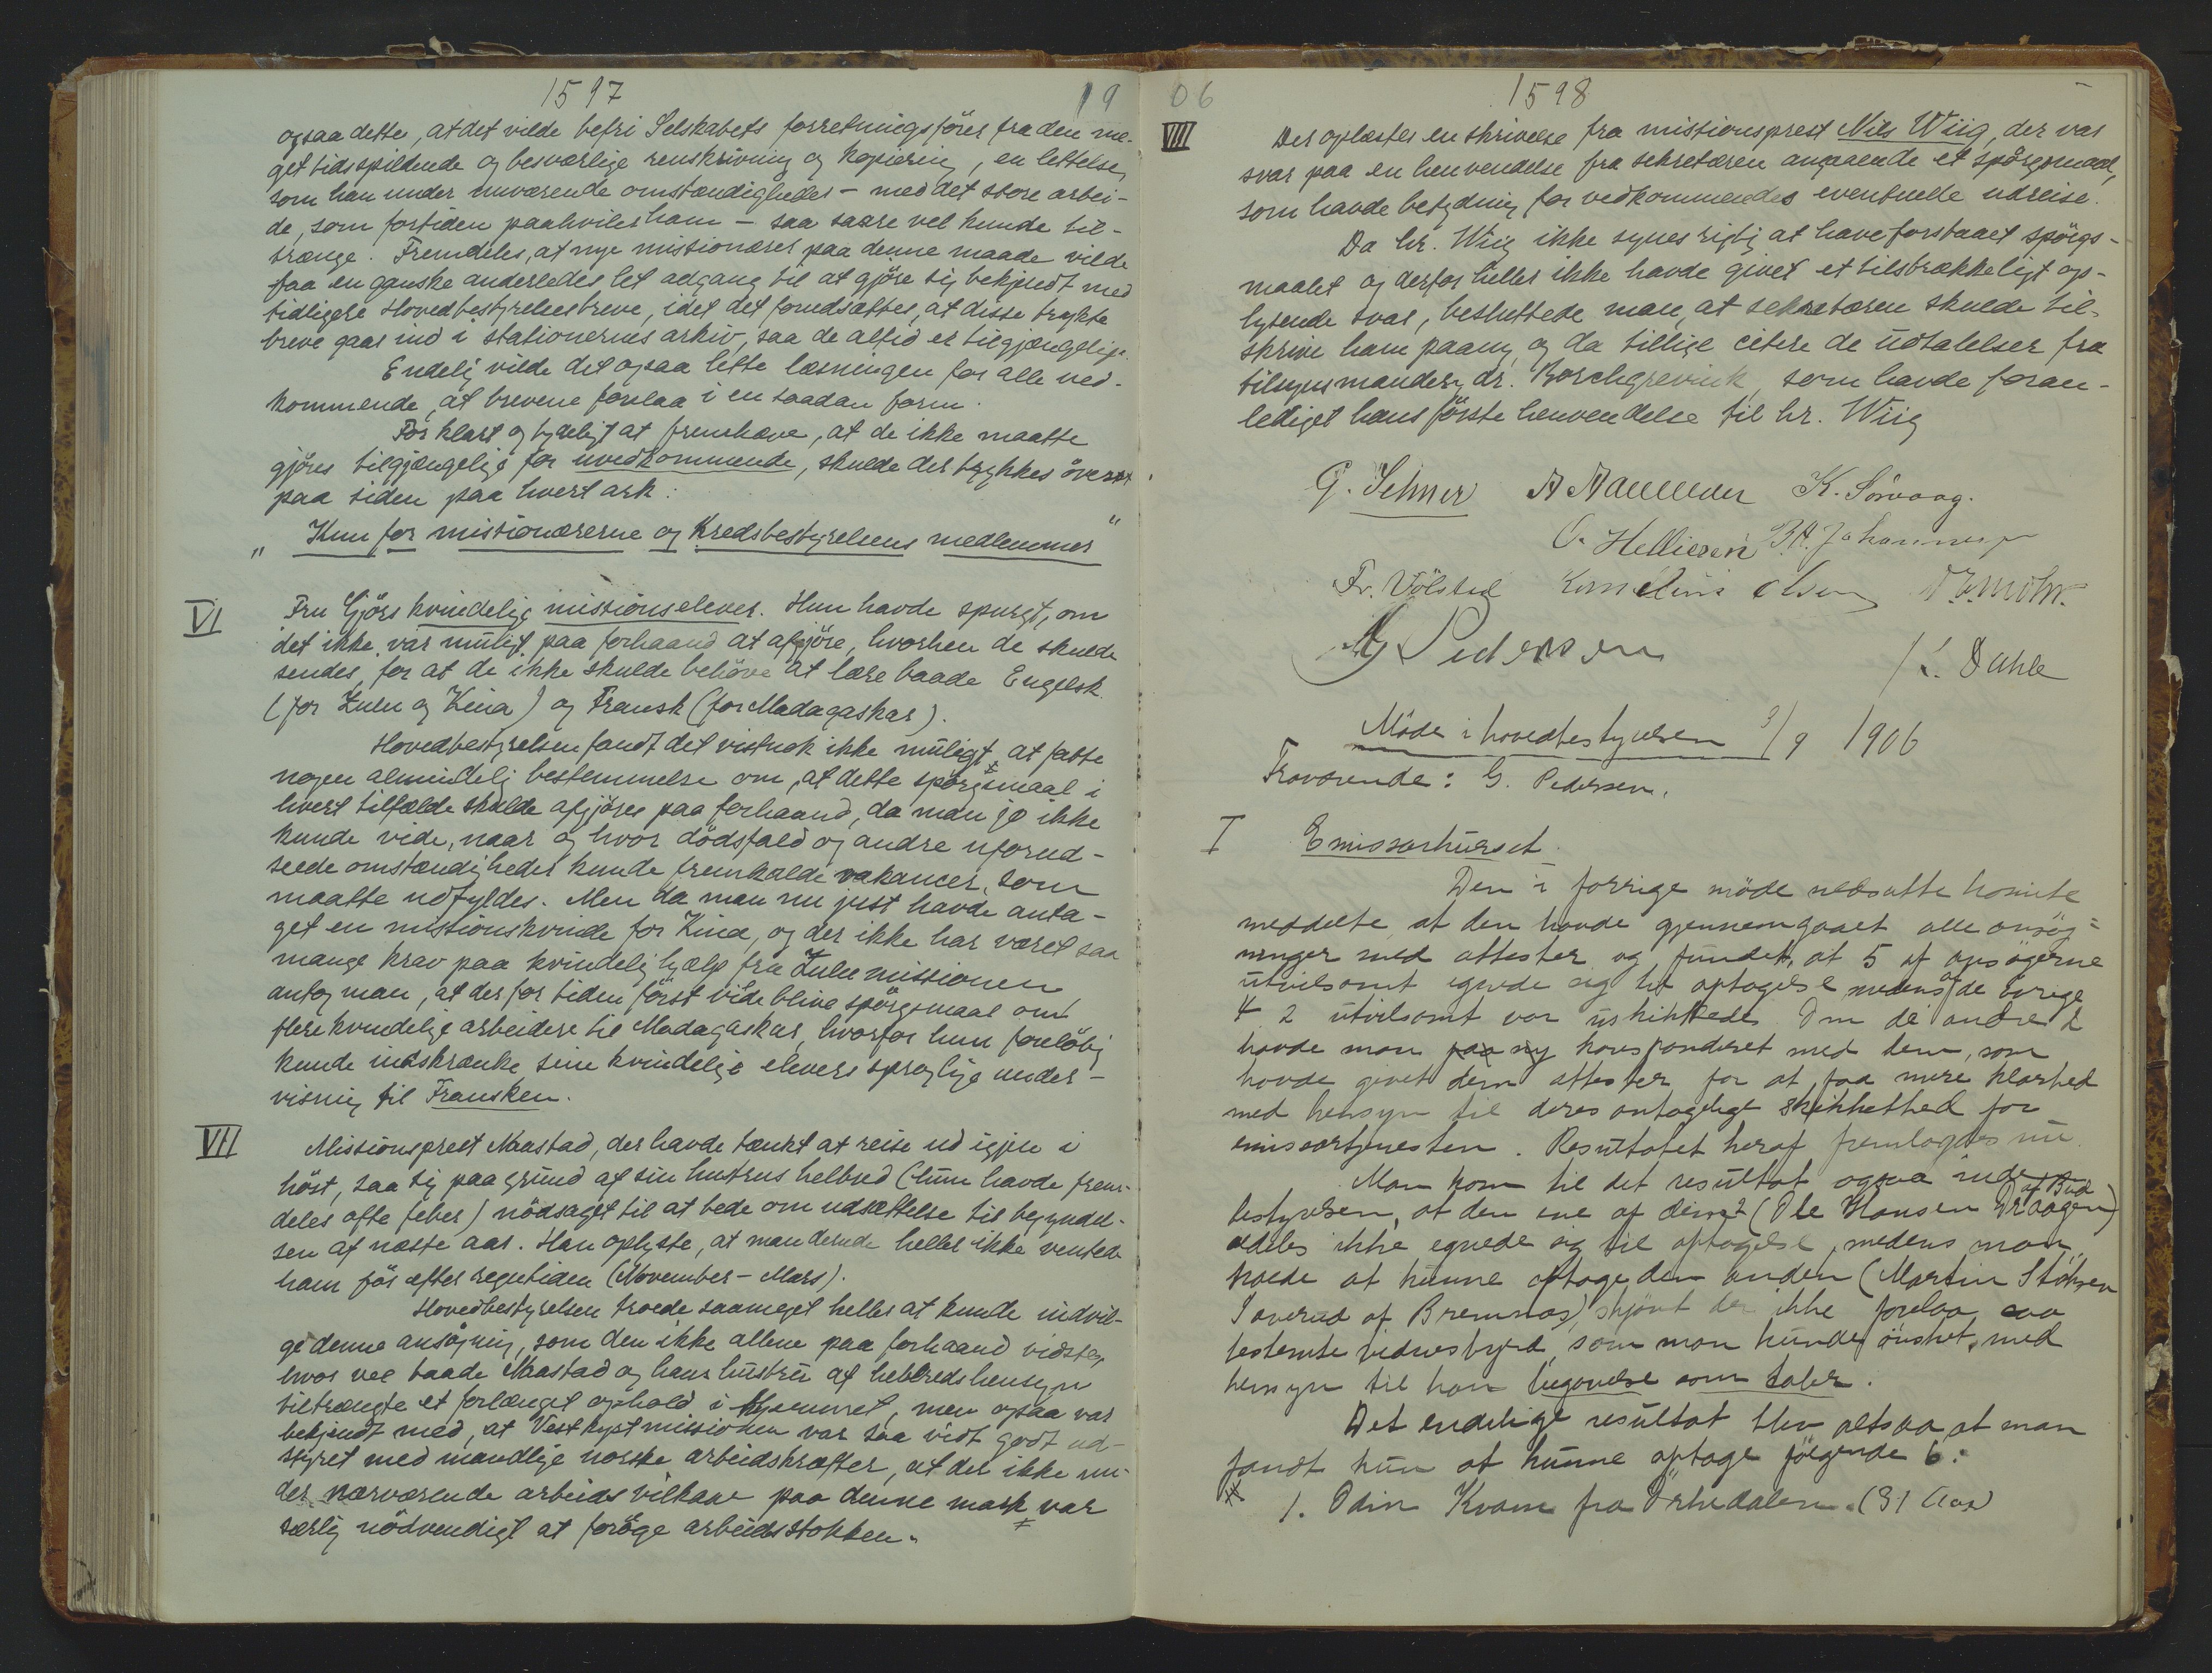 1597
19
ogsaa dette, at det vilde befri Selskabets forretningsfører fra den me-
get tidsspildende og besværlige renskrivning og kopiering, en lettelse,
som han under nuværende omstændigheder – med det store arbei-
de, som fortiden paahviler ham – saa saare vel kunde til-
trænge. Fremdeles, at nye missionærer paa denne maade vilde
faa en ganske anderledes let adgang til at gjöre sig bekjendt med
tidligere Hovedbestyrelsesbreve, idet det forudsættes, at disse trykte
breve gaar ind i stationernes arkiv, saa de altid er tilgjængelige.
Endelig vilde det ogsaa lette læsningen for alle ved-
kommende, at brevene forelaa i en saadan form.
For klart og tydeligt at fremhæve, at de ikke maatte
gjöres tilgjængelige for uvedkommende, skulde der trykkes överst
paa siden paa hvert ark:
"Kun for missionærerne og Kredsbestyrelsens medlemmer"
VI Fru Gjörs kvindelige missionselever. Hun havde spurgt, om
det ikke var muligt paa forhaand at afgjöre, hvorhen de skulde
sendes, for at de ikke skulde behöve at lære baade Engelsk
(for Zulu og Kina) og Fransk (for Madagaskar).
Hovedbestyrelsen fandt det vistnok ikke muligt, at fatte
nogen almindelig bestemmelse om, at dette spörgsmaal i
hvert tilfælde skulde afgjöres paa forhaand, da man jo ikke
kunde vide, naar og hvor dödsfald og andre uforud-
seede omstændigheder kunde fremkalde vakancer, som
maatte udfyldes. Men da man nu just havde anta-
get en missionskvinde for Kina, og der ikke har været saa
mange krav paa kvindelig hjælp fra Zulumissionen
antog man, at der for tiden först vilde blive spörgsmaal om
flere kvindelige arbeidere til Madagaskar, hvorfor hun forelöbig
kunde indskrænke sine kvindelige elevers sproglige under-
visning til Fransken.
VII Missionsprest Naastad, der havde tænkt at reise ud igjen i
höst, saa sig paa grund af sin hustrus helbred (hun havde frem-
deles ofte feber) nödsaget til at bede om udsættelse til begyndel-
sen af næste aar. Han oplyste, at man derude heller ikke ventede
ham för efter regntiden (November – Mars).
Hovedbestyrelsen troede saameget heller at kunde indvil-
ge denne ansögning, som den ikke allene paa forhaand vidste,
hvor vel baade Naastad og hans hustru af helbredshensyn
tiltrængte et forlænget ophold i hjemmet, men ogsaa var
bekjendt med, at Vestkystmissionen var saa vidt godt ud-
styret med mandlige norske arbeidskræfter, at det ikke un-
der nærværende arbeidsvilkaar paa denne mark var
særlig nödvendigt at foröge arbeidsstokken.
06
1598
VIII Der oplæstes en skrivelse fra missionsprest Nils Wiig, der var
svar paa en henvendelse fra sekretæren angaaende et spörgsmaal,
som havde betydning for vedkommendes eventuelle udreise.
Da hr. Wiig ikke synes rigtig at have forstaaet spörgs-
maalet og derfor heller ikke havde givet et tilstrækkeligt op-
lysende svar, besluttede man, at sekretæren skulde til-
skrive ham paany, og da tillige citere de udtalelser fra
tilsynsmanden, dr. Borchgrevink, som havde foran-
lediget hans förste henvendelse til hr. Wiig
G. Selmer K. Sörvaag.
O. Helliesen B.A. Johannesen
Fr. Völstad Kornelius Olsen
G Pedersen
L. Dahle
Möde i hovedbestyrelsen 3/9 1906
Fraværende: G. Pedersen.
I Emissærkurset.
Den i forrige möde nedsatte komite
meddelte at den havde gjennemgaaet alle ansög-
ninger med attester og fundet, at 5 af ansögerne
utvilsomt egnede sig til optagelse medens af de övrige
4 2 utvilsomt var uskikkede. Om de andre 2
havde man paa ny korresponderet med dem, som
havde givet dem attester for at faa mere klarhed
med hensyn til deres antagelige skikkethed for
emissærtjenesten. Resultatet heraf fremlagdes nu.
Man kom til det resultat ogsaa inden
bestyrelsen, at den ene af disse 2 (Ole Hansen Draagen af Bud)
aldeles ikke egnede sig til optagelse, medens man
troede at kunne optage den anden (Martin
af Bremnes), skjönt der ikke forelaa saa
bestemte vidnesbyrd, som man kunde önsket, med
hensyn til han begavelse som taler.
Det endelige resultat blev altsaa at man
fandt kun at kunne optage fölgende 6:
1. Odin Kvam fra Örkedalen (31 Aar)